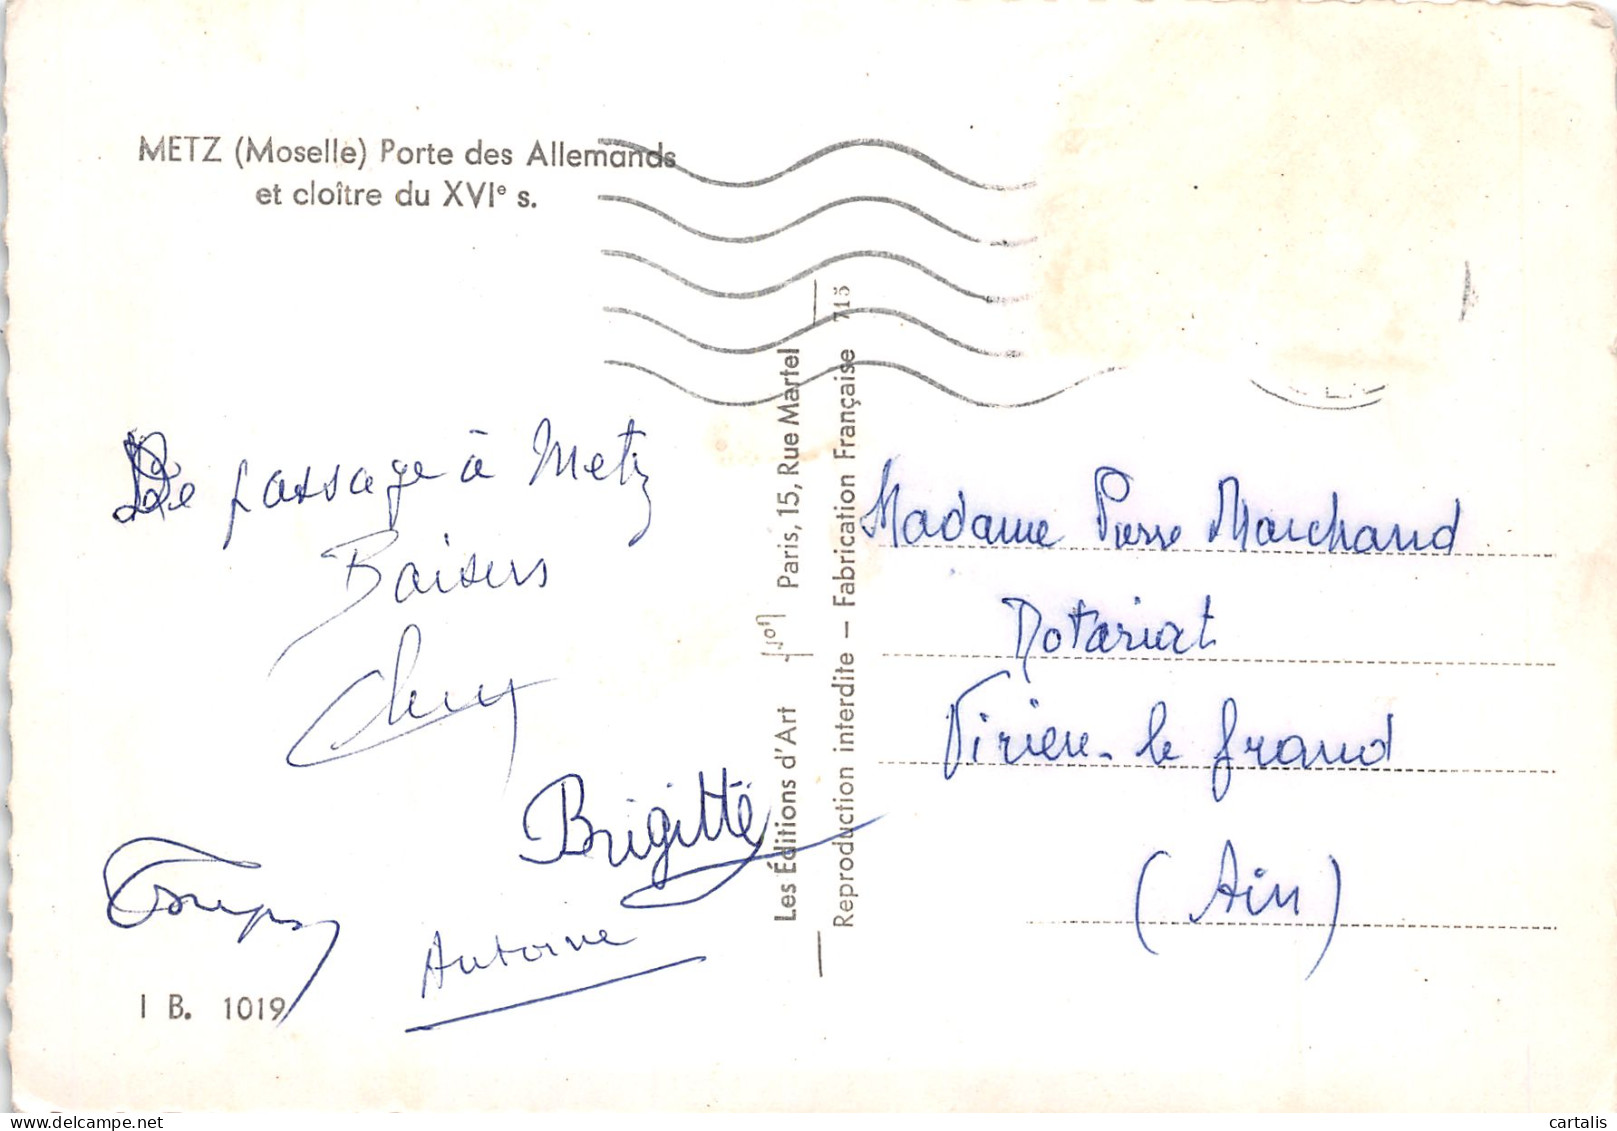 METZ (Moselle) Porte des Allemands
et cloître du XVIe s.
De passage à Metz
Baisers
Brigitte
Antoine
I B. 1019
Les Éditions d'Art Yvon Paris, 15, Rue Martel
Reproduction interdite – Fabrication Française 715
Madame Pierre Marchand
Notariat
Virieu-le grand
(Ain)
cartalis